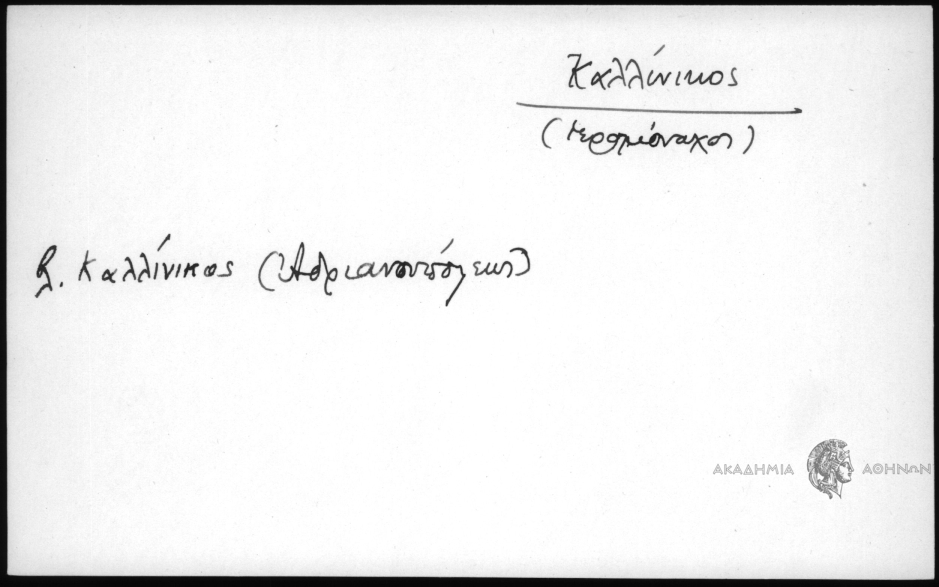 Καλλίνικος
(Ἱερομόναχος)
βλ. Καλλίνικος (Ἀδριανουπόλεως)
ΑΚΑΔΗΜΙΑ ΑΘΗΝΩΝ